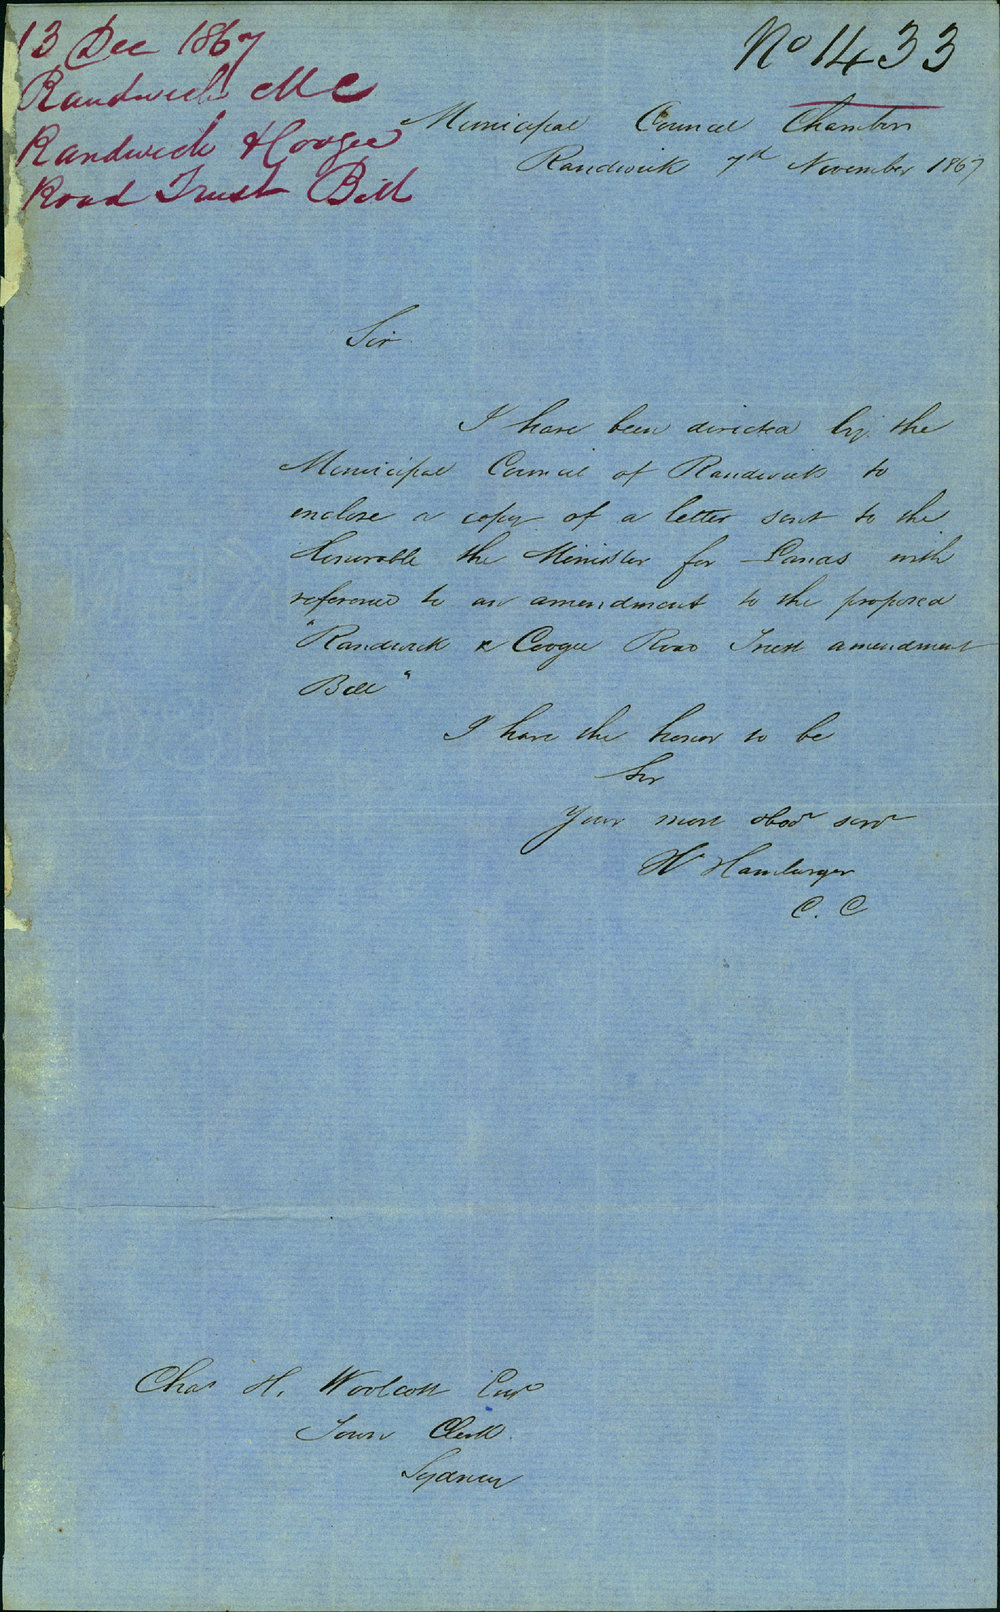 13 Dec 1867
Randwick M C
Randwick & Coogee
Road Trust Bill
No 1433
Municipal Council Chambers
Randwick 7th November 1867
Sir
I have been directed by the
Municipal Council of Randwick to
enclose a copy of a letter sent to the
Honorable the Minister for Lands with
reference to an amendment to the proposed
"Randwick & Coogee Road Trust amendment
Bill"
I have the honor to be
Sir
Your most obdt servt
H Hamburger
C. C
Chas H. Woolcott Esqr
Town Clerk
Sydney